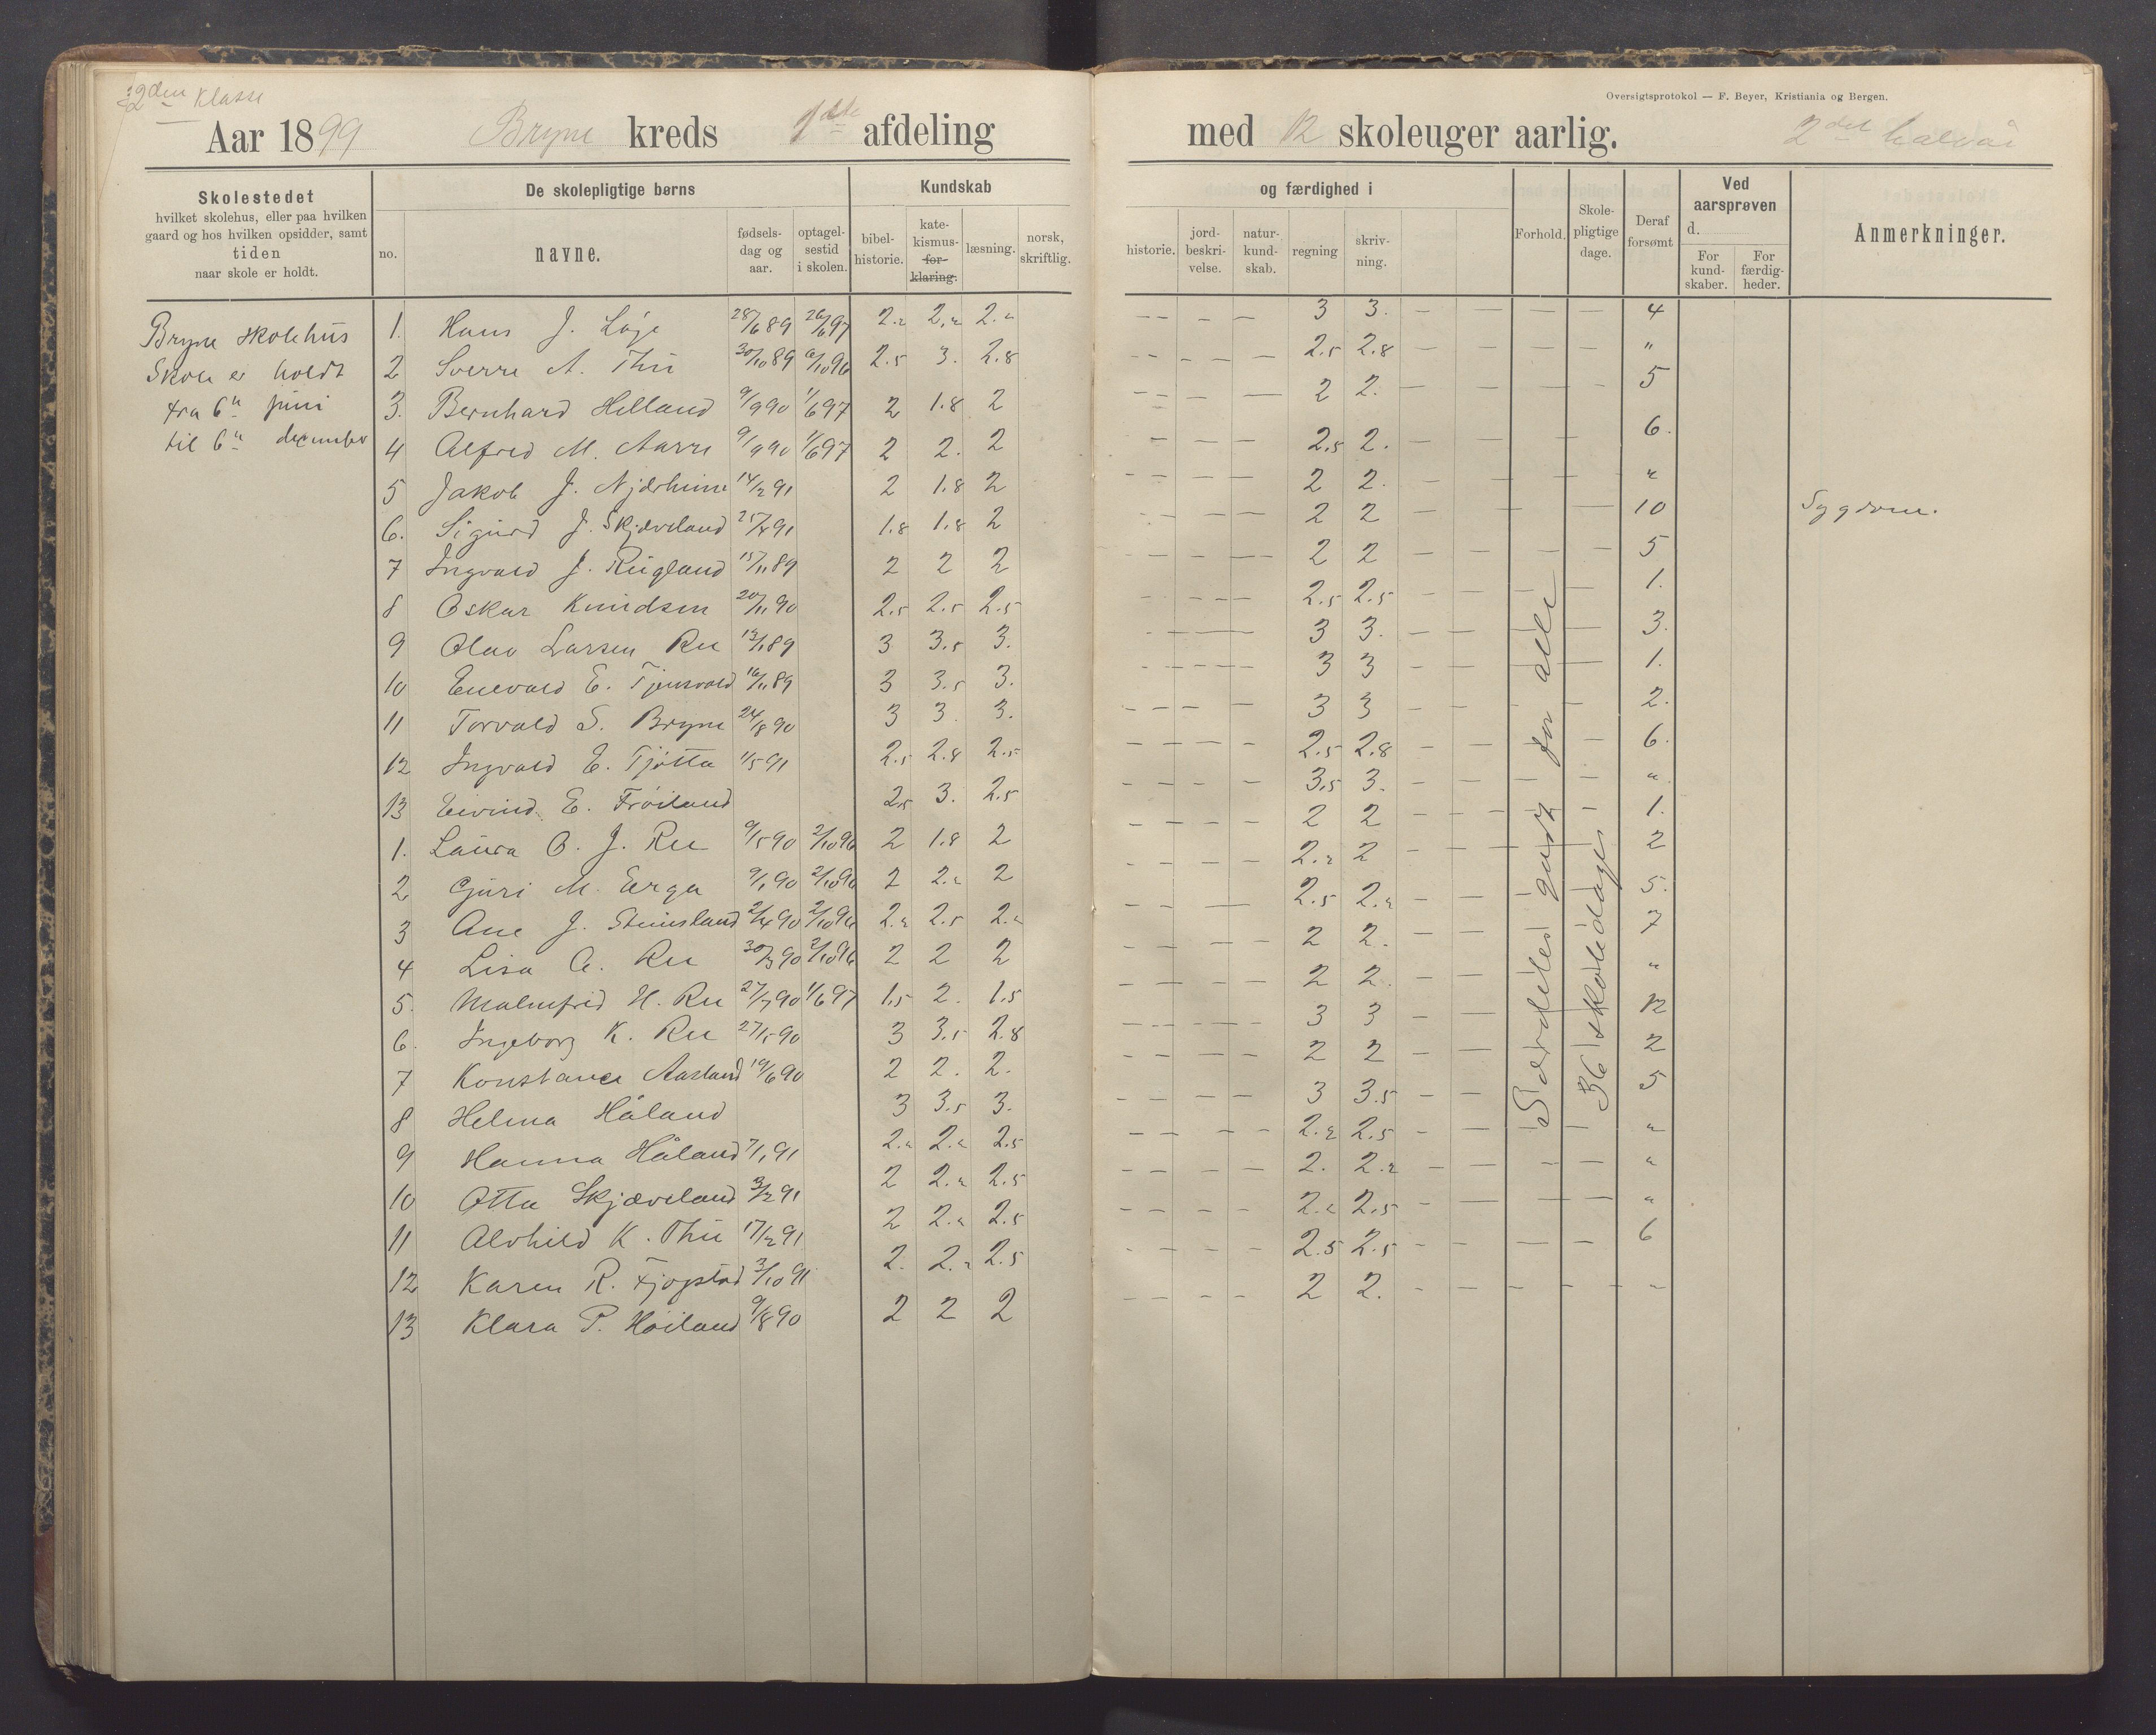 2den Klasse
Oversigtsprotokol — F. Beyer, Kristiania og Bergen.
Aar 1899 Bryne kreds 1ste afdeling med 12 skoleuger aarlig. 2det halvår
Skolestedet
hvilket skolehus, eller paa hvilken
gaard og hos hvilken opsidder, samt
tiden
naar skole er holdt.
De skolepligtige børns
no.
navne.
fødsels-
dag og
aar.
optagel-
sestid
i skolen.
Kundskab
bibel-
historie.
kate-
kismus-
for-
klaring.
læsning.
norsk,
skriftlig.
og færdighed i
historie.
jord-
beskri-
velse.
natur-
kund-
skab.
regning
skriv-
ning.
Forhold.
Skole-
pligtige
dage.
Deraf
forsømt
Ved
aarsprøven
d.
For
kund-
skaber.
For
færdig-
heder.
Anmerkninger.
Bryne skolehus
Skole er holdt
fra 6te juni
til 6te december
1. Hans J. Lõge 28/6 89 26/6 97 2.2 2.2 2.2 — — — 3 3. — — 4
2 Sverre A. Thu 30/10 89 6/10 96 2.5 3. 2.8 — — — — 2.5 2.8 — — — — "
3. Bernhard Helland 9/9 90 1/6 97 2 1.8 2 — — — 2 2. — — — — 5
4 Alfred M. Aarre 9/9 90 1/6 97 2 2. 2 — — — 2.5 2. — — — 6.
5 Jakob J. Njærheim 14/2 91 2 1.8 2 — — — — 2 2. — — — "
6. Sigurd J. Skjæveland 25/4 91 1.8 1.8 2 — — — — 2 2 — — — — 10 Sygdom.
7 Ingvald J. Rugland 15/11 89 2 2 2 — — — — 2 2 — — — — 5
8 Oskar Knudsen 20/11 90 2.5 2.5 2.5 — — — — 2.5 2.5 — — — 1.
9 Olav Larsen Ree 13/1 89 3 3.5 3. — — — 3 3. — — — 3.
10 Enevald E. Tjensvold 16/11 89 3 3.5 3. — — — — 3 3 — — — 1.
11 Torvald S. Bryne 24/8 90 3 3. 3. — — — — 3 3 — — — 2.
12 Ingvald E. Tjøtta 1/5 91 2.5 2.8 2.5 — — — — 2.5 2.8 — — — 6.
13 Eivind E. Frøiland 2.5 3. 2.5 — — — — 3.5 3. — — — "
1. Laura O. J. Ree 9/5 90 2/10 96 2 1.8 2 — — — — 2 2 — — — 1.
2 Guri M. Erga 9/1 90 2/10 96 2 2.2 2 — — — — 2.2 2 — — — 2
3 Ane J. Stensland 2/4 90 2/10 96 2.2 2.5 2.2 — — — — 2.5 2.2 — — 5.
4 Lisa A. Ree 30/3 90 2/10 96 2 2 2 — — — — 2 2. — — 7
5. Malmfrid H. Ree 27/7 90 1/6 97 1.5 2. 1.5 — — — — 2 2. — — "
6. Ingeborg K. Ree 27/5 90 3 3.5 2.8 — — — — 3 3 — — 12
7 Konstance Aasland 19/6 90 2 2. 2. — — — — 2 2 — — 2
8 Helena Håland 3 3.5 3. — — — — 3 3.5 — — 5
9 Hanna Håland 7/1 91 2.2 2.2 2.5 — — — — 2.2 2.5 — — — "
10 Otta Skjæveland 3/2 91 2 2.2 2.5 — — — — 2. 2.2 — — — — "
11 Alvhild K. Thu 17/2 91 2 2.2 2.5 — — — — 2.2 2.5 — — — — "
12 Karen R. Fjogstad 3/10 91 2. 2.2 2.5 — — — — 2.5 2.5 — — — — 6
13 Klara P. Høiland 9/8 90 2 2 2 — — — — 2 2. — — — — "
Særdeles godt for alle
36 skoledage